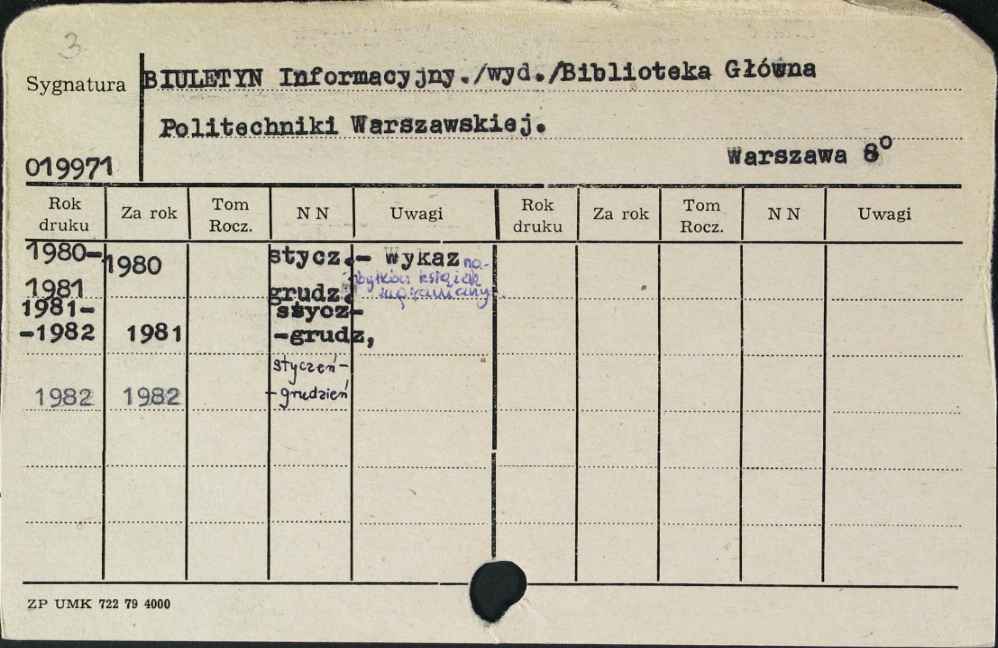 3
Sygnatura BIULETYN Informacyjny./wyd./Biblioteka Główna
Politechniki Warszawskiej.
019971 Warszawa 8°
Rok druku Za rok Tom Rocz. N N Uwagi Rok druku Za rok Tom Rocz. N N Uwagi
1980- 1980 stycz.- wykaz na-
bytków książek
1981 grudz.
1981- stycz-
-1982 1981 -grudz,
styczeń-
1982 1982 -grudzień
ZP UMK 722 79 4000